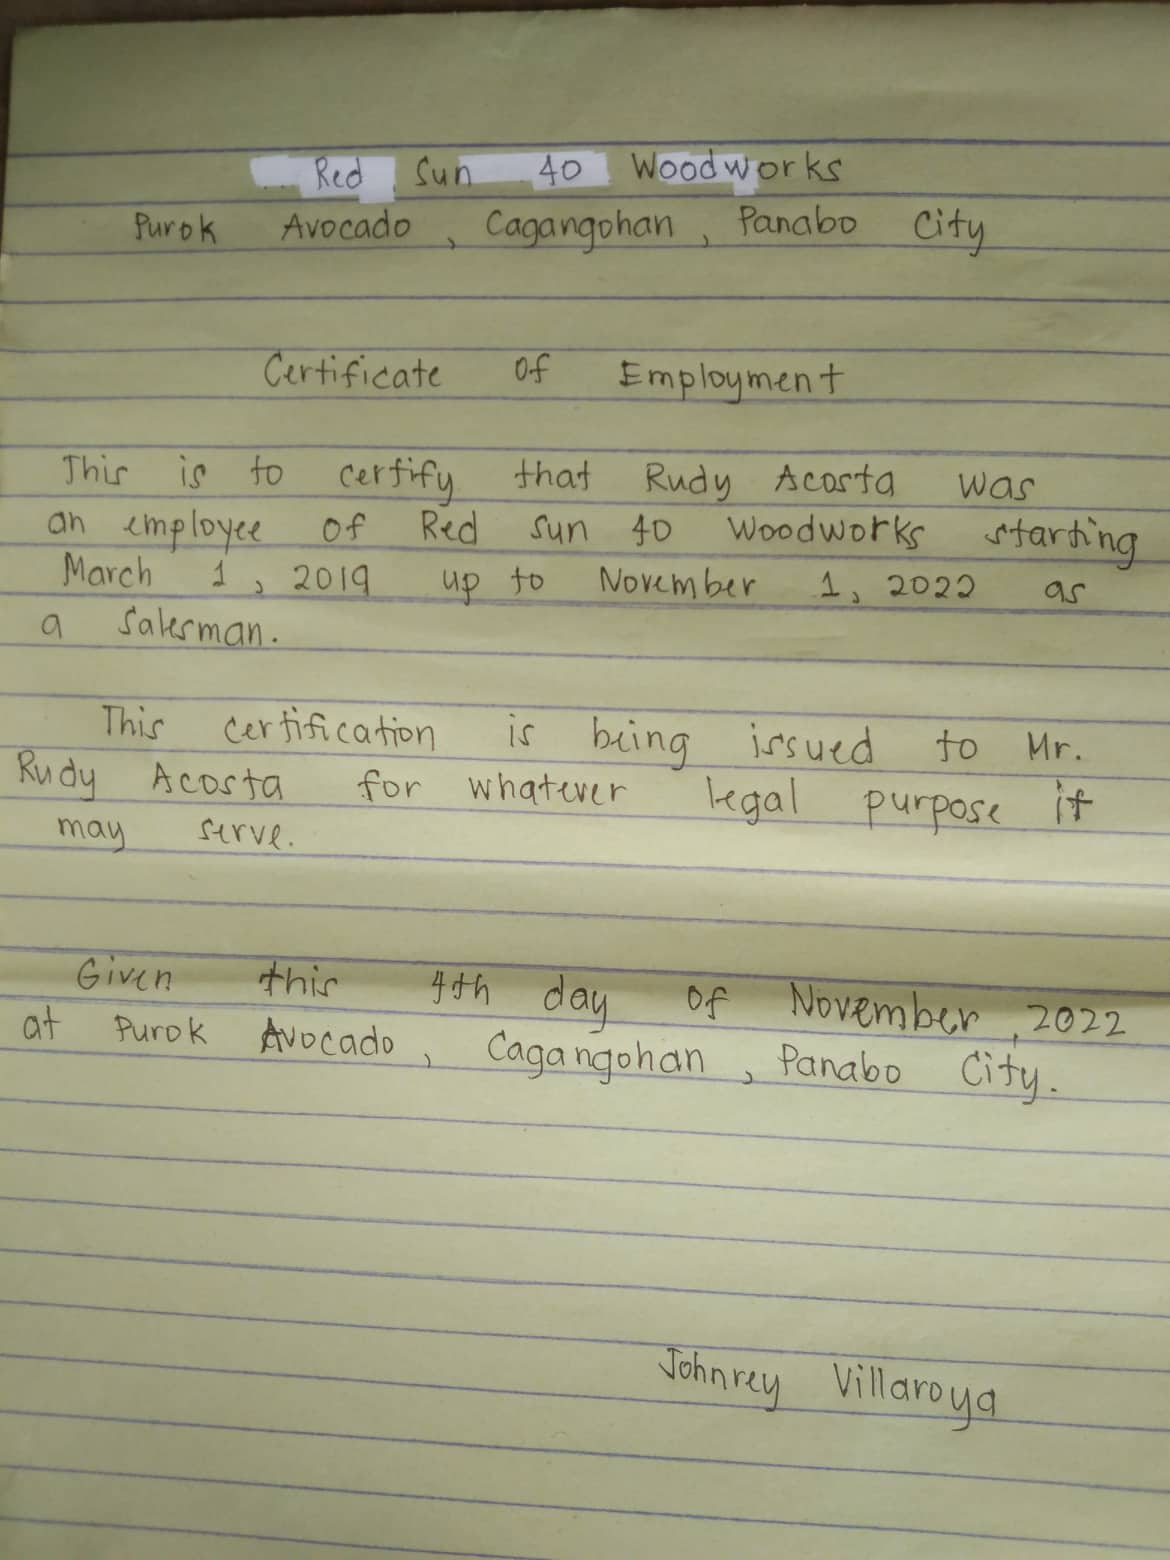 Red Sun 40 Woodworks
Purok Avocado, Cagangohan, Panabo City
Certificate of Employment
This is to certify that Rudy Acosta was
an employee of Red Sun 40 Woodworks starting
March 1, 2019 up to November 1, 2022 as
a Salesman.
This certification is being issued to Mr.
Rudy Acosta for whatever legal purpose it
may serve.
Given this 4th day of November, 2022
at Purok Avocado, Cagangohan, Panabo City.
Johnrey Villaroya